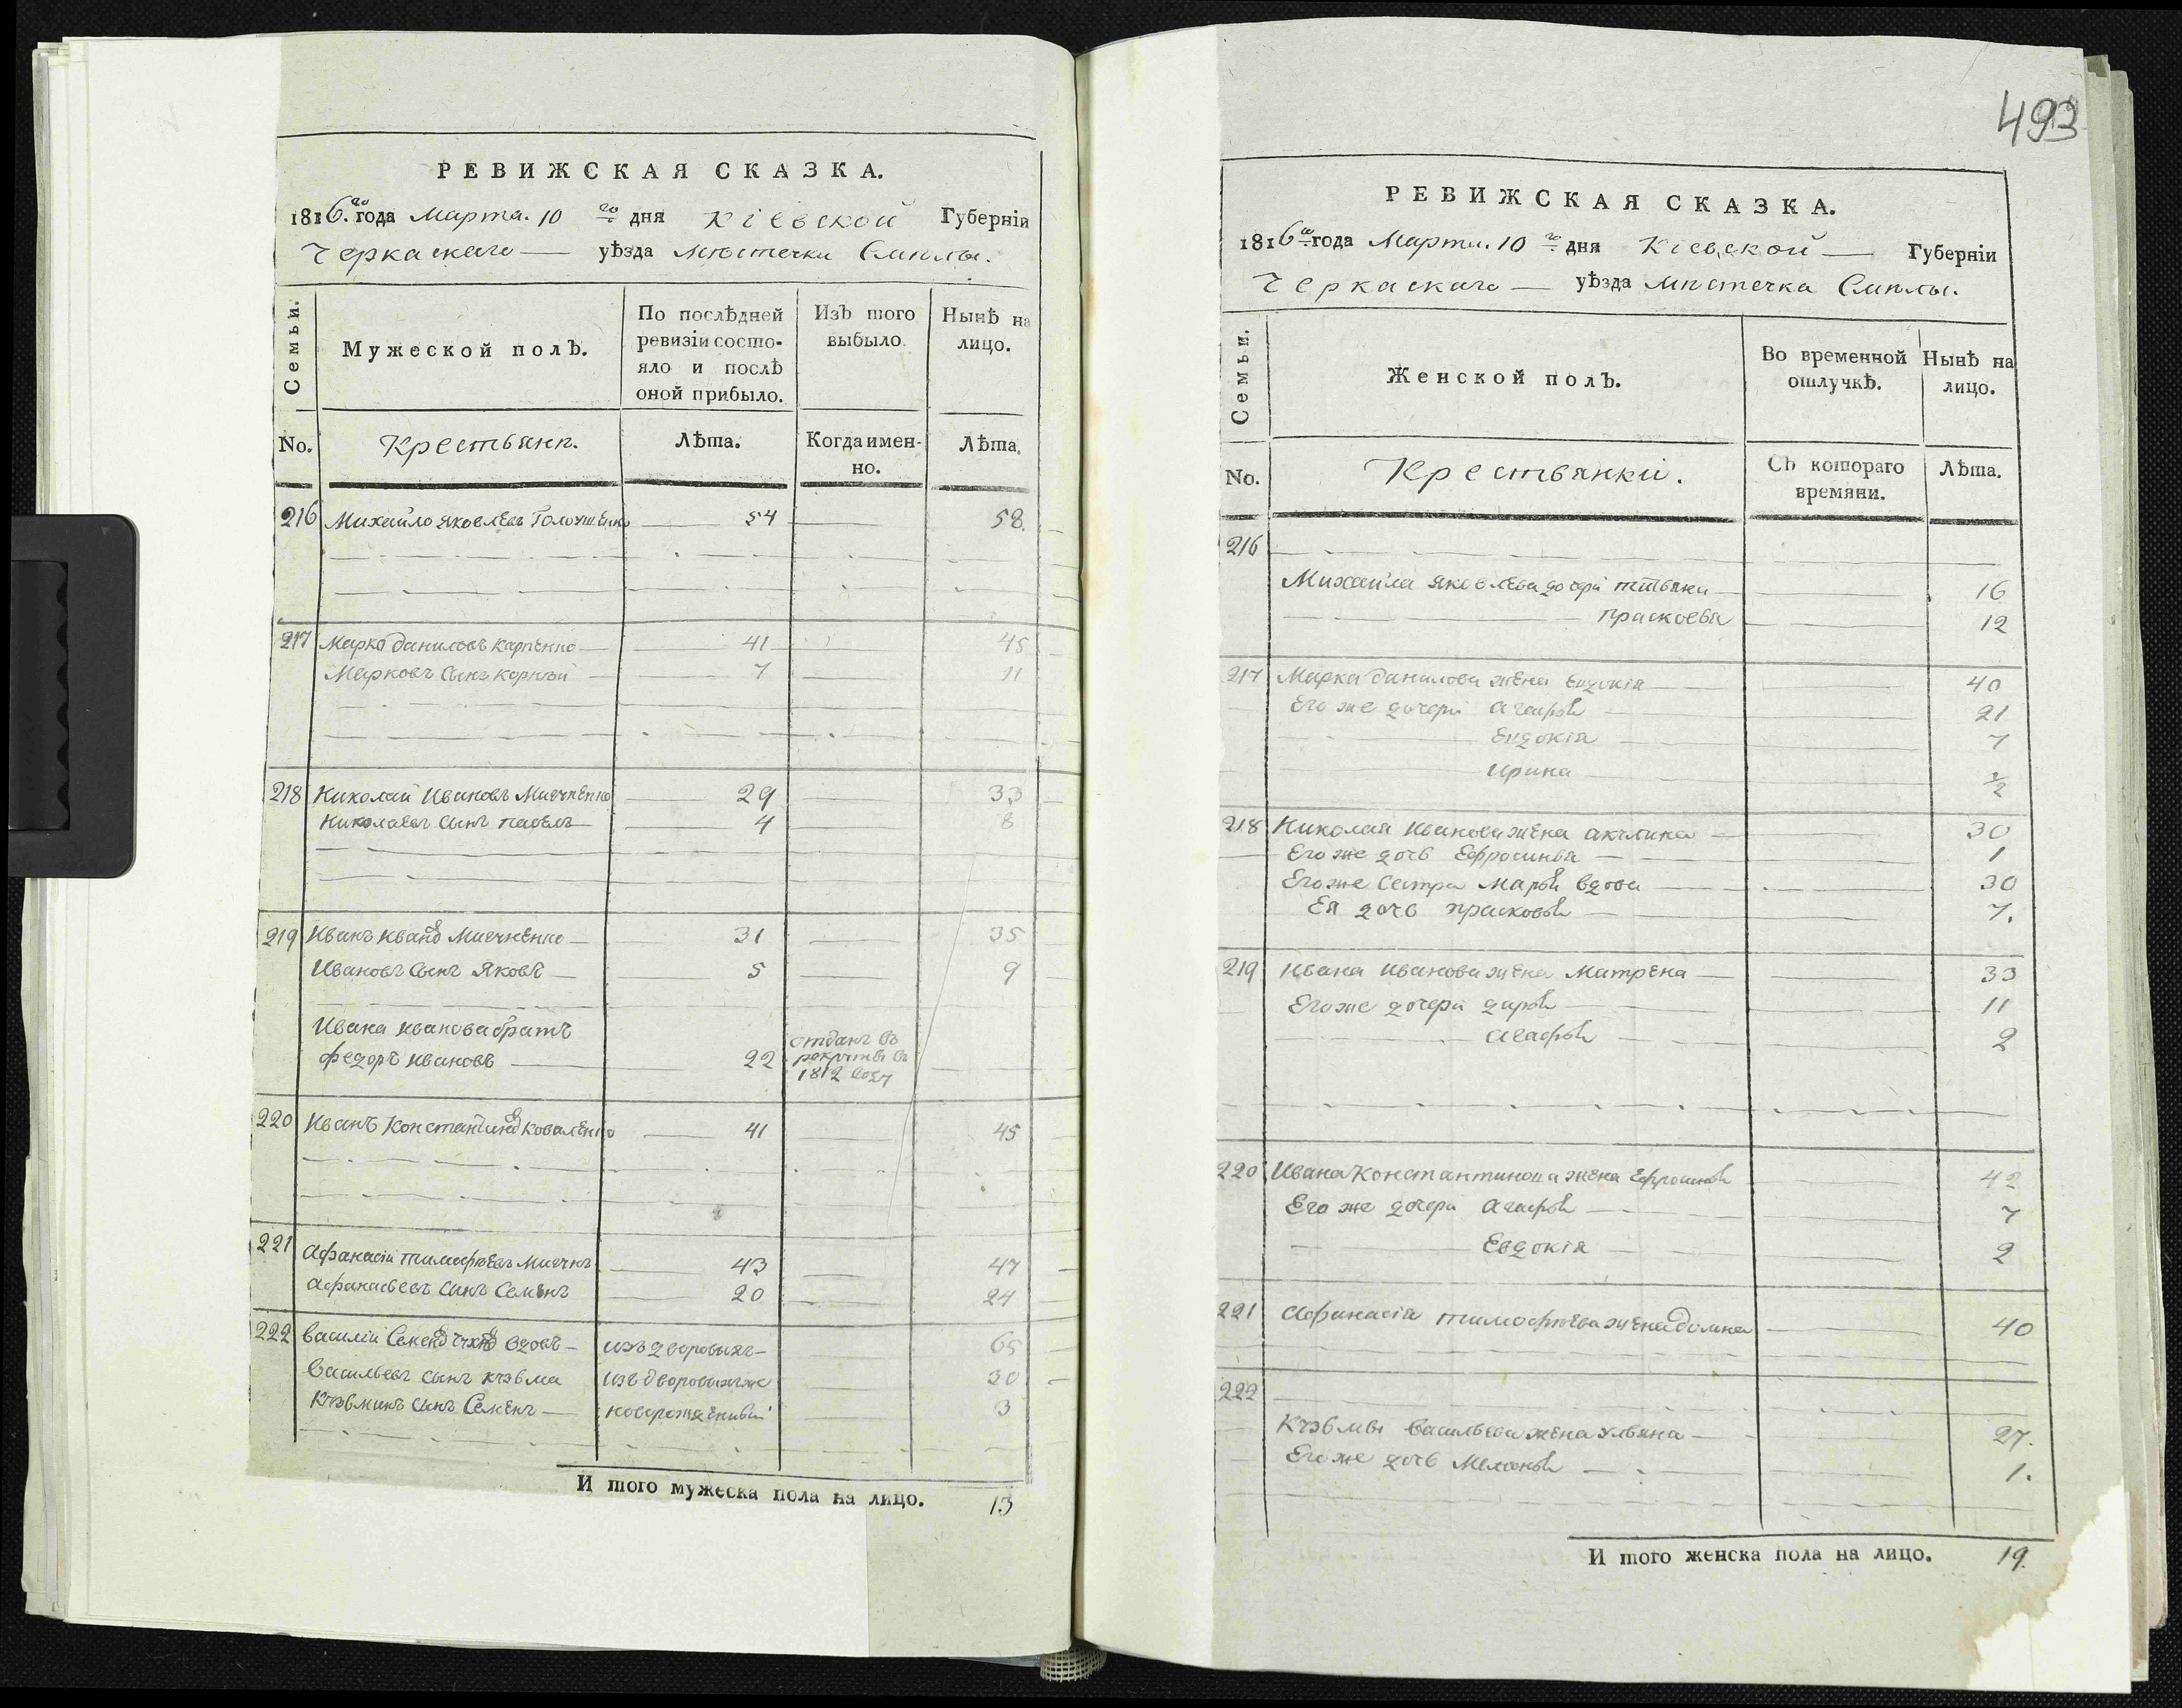 РЕВИЖСКАЯ СКАЗКА.
1816.го года Марта. 10 го дня Кіевской Губерніи
Черкаскаго уѣзда мѣстечка Смѣлы.
Семьи.
Мужеской полЪ.
По послѣдней ревизіи состо-
яло и послѣ
оной прибыло.
ИзЪ того
выбыло.
НынѢ на
лицо.
No.
Крестьянѣ.
ЛѢта.
Когда имен-
но.
ЛѢта.
216 Михайло Яковлевъ 54 58.
217 Марко Даниловъ Карпенко 41 45
Марковъ сынъ Корнѣй 7 11
218 Николай Ивановъ 29 33
Николаевъ сынъ Павелъ 4 8
219 Иванъ Ивановъ 31 35
Ивановъ сынъ Яковъ 5 9
Ивана Иванова братъ
Федоръ Ивановъ 22 отданъ въ рекруты въ 1812 году
220 Иванъ Константиновъ Коваленко 41 45
221 Афанасій Тимофѣевъ 43 47
Афанасьевъ сынъ Семенъ 20 24
222 Василій Семеновъ вдовъ изъ дворовыхъ 65
Васильевъ сынъ Кузьма изъ дворовыхъ же 30
Кузьминъ сынъ Семенъ новорожденный 3
И того мужеска пола на лицо. 13
493
РЕВИЖСКАЯ СКАЗКА.
1816го года Марта. 10 го дня Кіевской Губерніи
Черкаскаго уѣзда мѣстечка Смѣлы.
Семьи.
Женской полЪ.
Во временной
отлучкѢ.
НынѢ на
лицо.
No.
Крестьянкі.
СЪ котораго
времяни.
ЛѢта.
216
Михайла Яковлева дочери Татьяна 16
Прасковья 12
217 Марка Данилова жена Евдокія 40
Его же дочери Агафья 21
Евдокія 7
Ирина 1/2
218 Николая Иванова жена Акулина 30
Его же дочь Ефросинья 1
Его же сестра Марья вдова 30
Ея дочь Прасковья 7.
219 Ивана Иванова жена Матрена 33
Его же дочери Дарья 11
Агафья 2
220 Ивана Константинова жена Ефросинья 42
Его же дочери Агафья 7
Евдокія 2
221 Афанасія Тимофѣева жена Домна 40
222
Кузьмы Васильева жена Ульяна 27.
Его же дочь Меланья 1.
И того женска пола на лицо. 19.